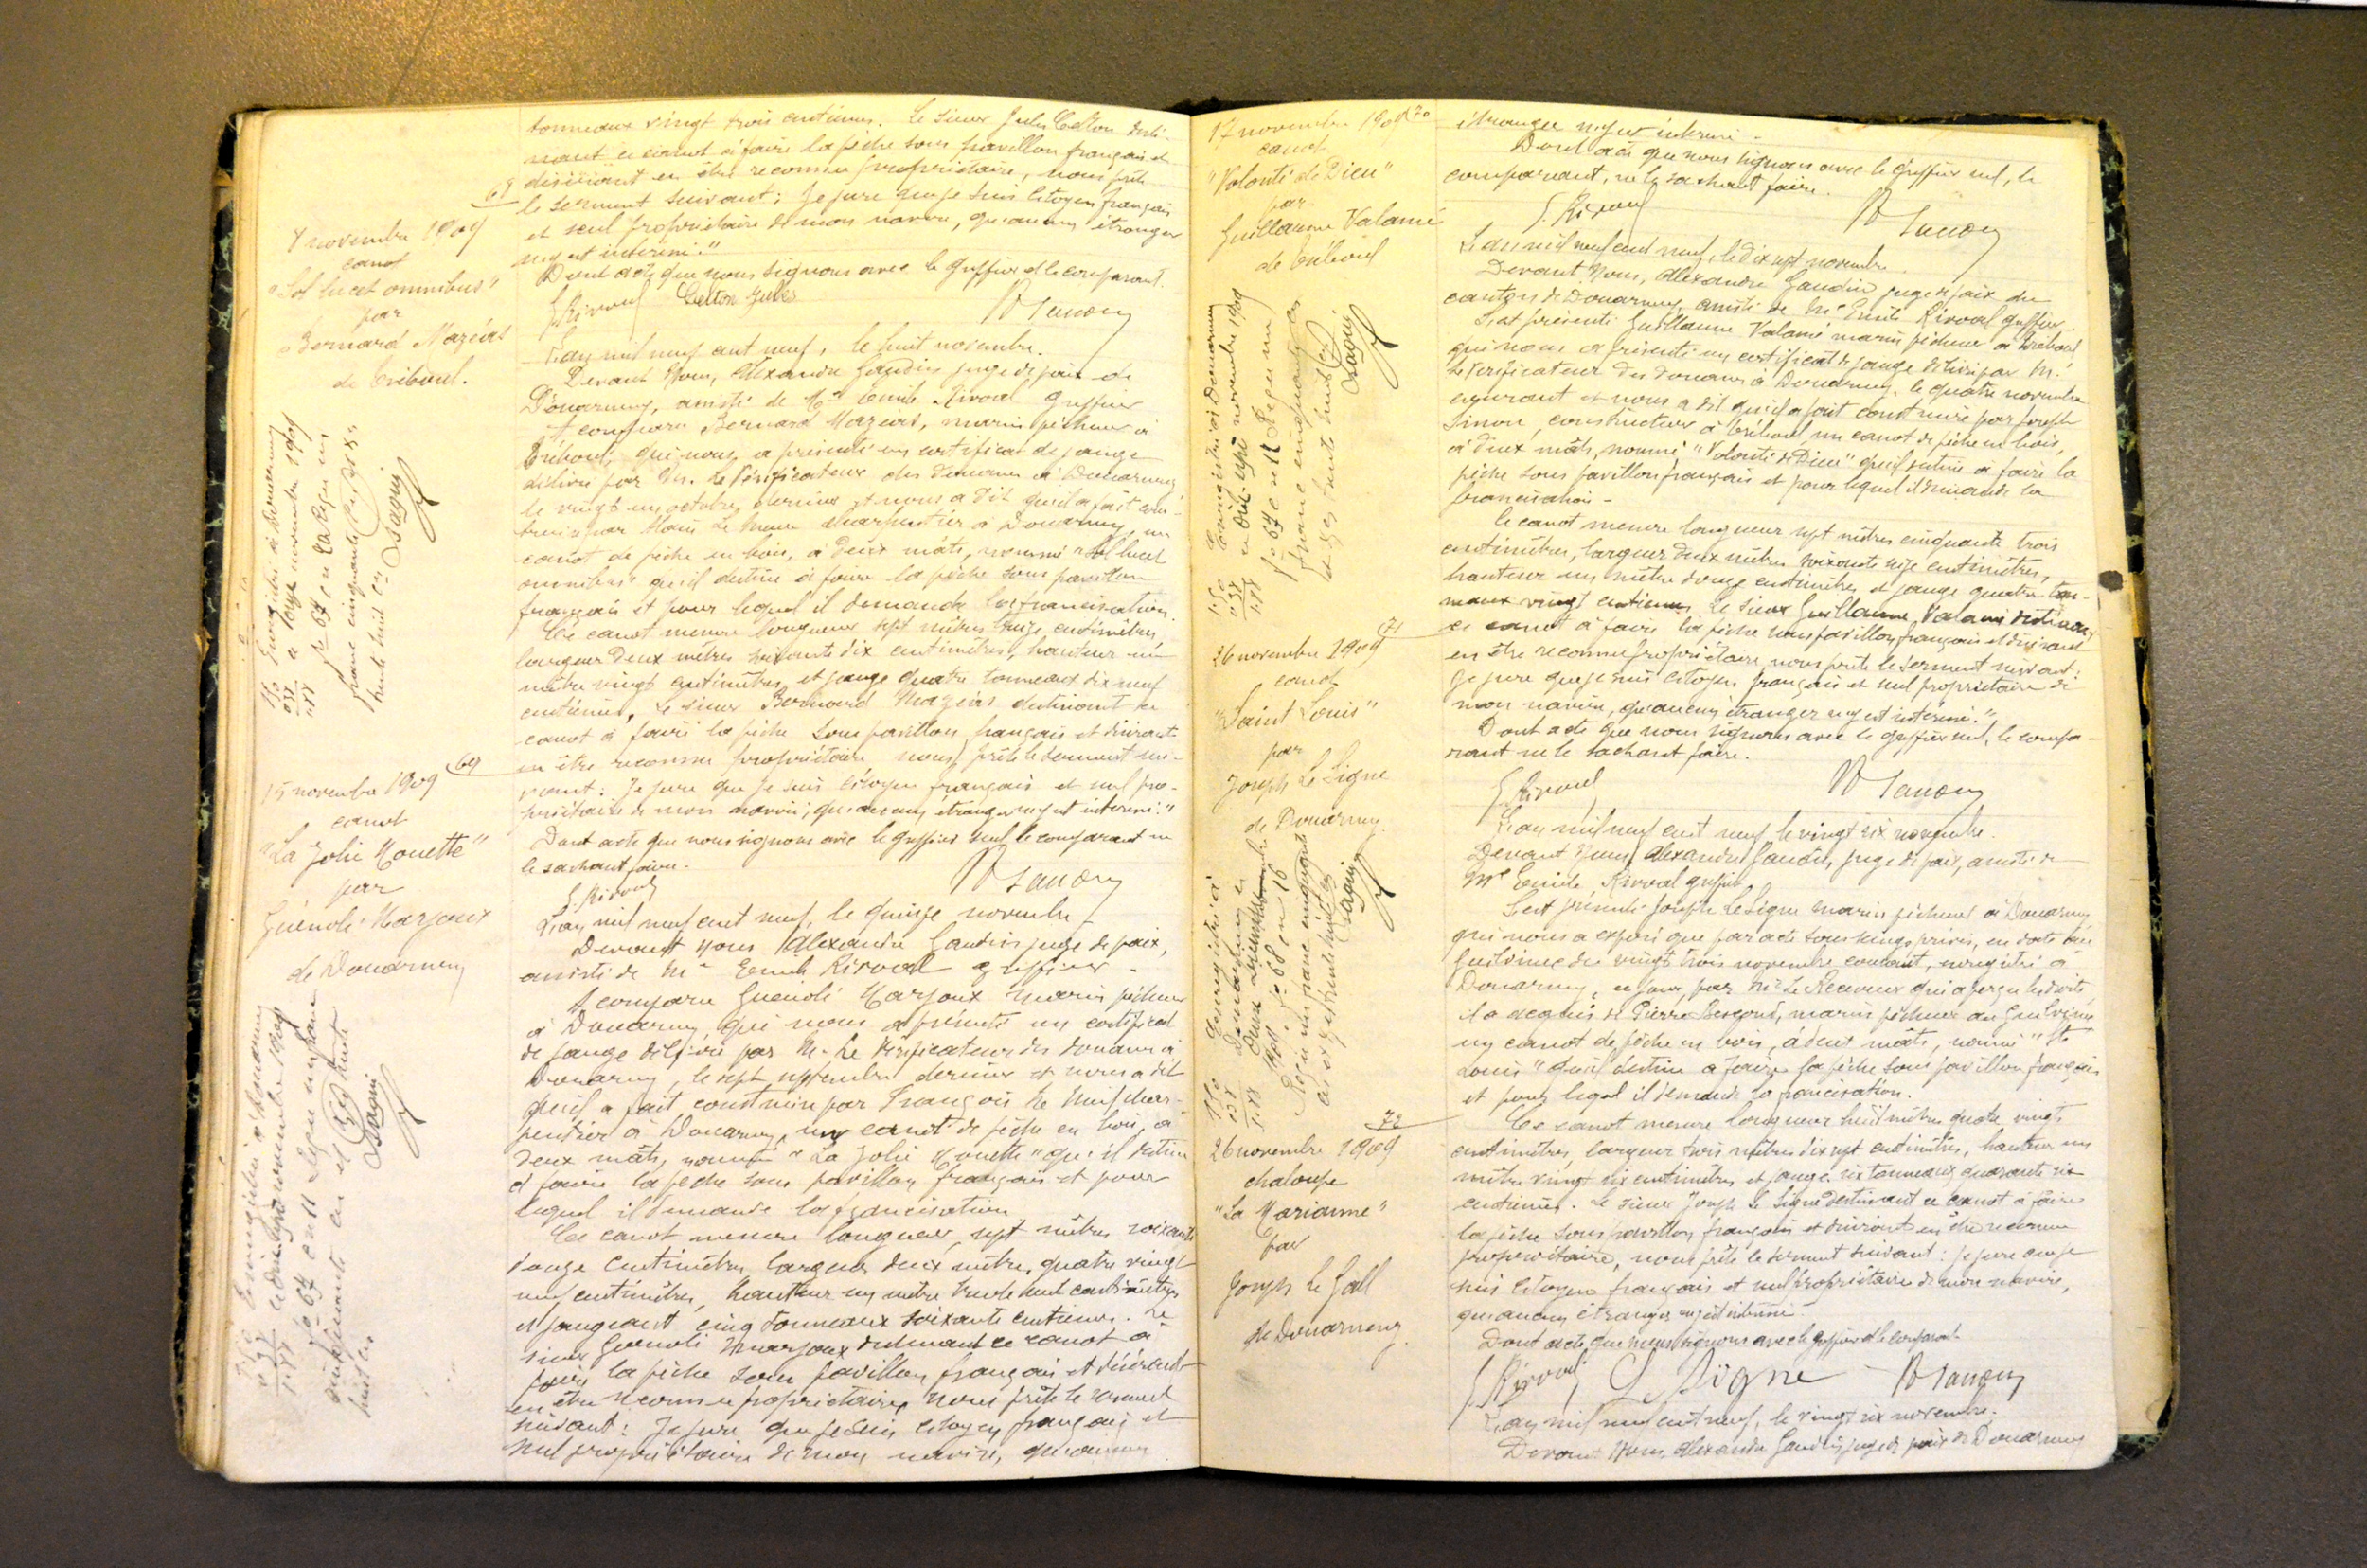 tonneaux vingt trois centièmes. Le sieur Jules Celton desti-
nant ce canot à faire la pêche sous pavillon français et
désirant en être reconnu propriétaire, nous prête
le serment suivant : Je jure que je suis citoyen français
et seul propriétaire de mon navire, qu'aucun étranger
n'y est intéressé."
Dont acte que nous signons avec le greffier et le comparant.
E. Rivoal Celton Jules
68
8 novembre 1909
canot
"Sol lucet omnibus"
par
Bernard Mazéas
de Tréboul.
L'an mil neuf cent neuf, le huit novembre.
Devant Nous, Alexandre Gaudin juge de paix de
Douarnenez, assisté de Me Emile Rivoal greffier
A comparu Bernard Mazéas, marin pêcheur à
Tréboul, qui nous a présenté un certificat de jauge
délivré par M. Le Vérificateur des douanes à Douarnenez
le vingt un octobre dernier et nous a dit qu'il a fait cons-
truire par charpentier à Douarnenez, un
canot de pêche en bois, à deux mâts, nommé "Sol lucet
omnibus" qu'il destine à faire la pêche sous pavillon
français et pour lequel il demande la francisation.
Ce canot mesure longueur sept mètres treize centimètres,
largeur deux mètres soixante dix centimètres, hauteur un
mètre vingt centimètres et jauge quatre tonneaux dix neuf
centièmes. Le sieur Bernard Mazéas destinant ce
canot à faire la pêche sous pavillon français et désirant
en être reconnu propriétaire, nous prête le serment sui-
vant : Je jure que je suis citoyen français et seul pro-
priétaire de mon navire, qu'aucun étranger n'y est intéressé."
Dont acte que nous signons avec le greffier seul le comparant ne
le sachant faire.
E. Rivoal
69
15 novembre 1909
canot
"La Jolie Mouette"
par
Guénolé Marjoux
de Douarnenez
L'an mil neuf cent neuf, le quinze novembre
Devant Nous Alexandre Gaudin juge de paix,
assisté de Me Emile Rivoal greffier.
A comparu Guénolé Marjoux marin pêcheur
à Douarnenez, qui nous a présenté un certificat
de jauge délivré par M. Le Vérificateur des douanes à
Douarnenez, le sept septembre dernier et nous a dit
qu'il a fait construire par François char-
pentier à Douarnenez, un canot de pêche en bois, à
deux mâts, nommé "La Jolie Mouette" qu'il destine
à faire la pêche sous pavillon français et pour
lequel il demande la francisation
Ce canot mesure longueur, sept mètres soixante
douze centimètres largeur deux mètres, quatre vingt
neuf centimètres, hauteur un mètre trente huit centimètres
et jaugeant cinq tonneaux soixante centièmes. Le
sieur Guénolé Marjoux destinant ce canot à
faire la pêche sous pavillon français et désirant
en être reconnu propriétaire nous prête le serment
suivant : Je jure que je suis citoyen français et
seul propriétaire de mon navire, qu'aucun
17 novembre 1909 70
canot
"Volonté de Dieu"
par
Guillaume Valamé
de Tréboul
étranger n'y est intéressé.
Dont acte que nous signons avec le greffier seul, le
comparant, ne le sachant faire.
E. Rivoal
L'an mil neuf cent neuf, le dix sept novembre.
Devant Nous, Alexandre Gaudin juge de paix du
canton de Douarnenez, assisté de Me Emile Rivoal greffier.
S'est présenté Guillaume Valamé marin pêcheur à Tréboul
qui nous a présenté un certificat de jauge délivré par M.
Le Vérificateur des douanes à Douarnenez, le quatre novembre
courant et nous a dit qu'il a fait construire par Joseph
Simon, constructeur à Tréboul, un canot de pêche en bois,
à deux mâts, nommé "Volonté de Dieu" qu'il destine à faire la
pêche sous pavillon français et pour lequel il demande la
francisation.
Ce canot mesure longueur sept mètres cinquante trois
centimètres, largeur deux mètres soixante seize centimètres,
hauteur un mètre douze centimètres et jauge quatre ton-
neaux vingt centièmes. Le sieur Guillaume Valamé destinant
ce canot à faire la pêche sous pavillon français et désirant
en être reconnu propriétaire nous prête le serment suivant :
Je jure que je suis citoyen français et seul propriétaire de
mon navire, qu'aucun étranger n'y est intéressé."
Dont acte que nous signons avec le greffier seul, le compa-
rant ne le sachant faire.
E. Rivoal
71
26 novembre 1909
canot
"Saint Louis"
par
Joseph Le Signe
de Douarnenez
L'an mil neuf cent neuf, le vingt six novembre.
Devant Nous Alexandre Gaudin, juge de paix, assisté de
Me Emile Rivoal greffier
S'est présenté Joseph Le Signe marin pêcheur à Douarnenez
qui nous a exposé que par acte sous seings privés, en date au
Guilvinec du vingt trois novembre courant, enregistré à
Douarnenez, ce jour, par Mr Le Receveur qui a perçu les droits,
il a acquis de Pierre Bescond, marin pêcheur au Guilvinec
un canot de pêche en bois, à deux mâts, nommé "St
Louis" qu'il destine à faire la pêche sous pavillon français
et pour lequel il demande la francisation.
Ce canot mesure longueur huit mètres quatre vingt
centimètres, largeur trois mètres dix sept centimètres, hauteur un
mètre vingt six centimètres et jauge six tonneaux quarante six
centièmes. Le sieur Joseph Le Signe destinant ce canot à faire
la pêche sous pavillon français et désirant en être reconnu
propriétaire, nous prête le serment suivant : je jure que je
suis citoyen français et seul propriétaire de mon navire,
qu'aucun étranger n'y est intéressé.
Dont acte que nous signons avec le greffier et le comparant.
E. Rivoal Le Signe
72
26 novembre 1909
chaloupe
"La Marianne"
par
Joseph Le Gall
de Douarnenez.
L'an mil neuf cent neuf, le vingt six novembre.
Devant Nous, Alexandre Gaudin juge de paix de Douarnenez